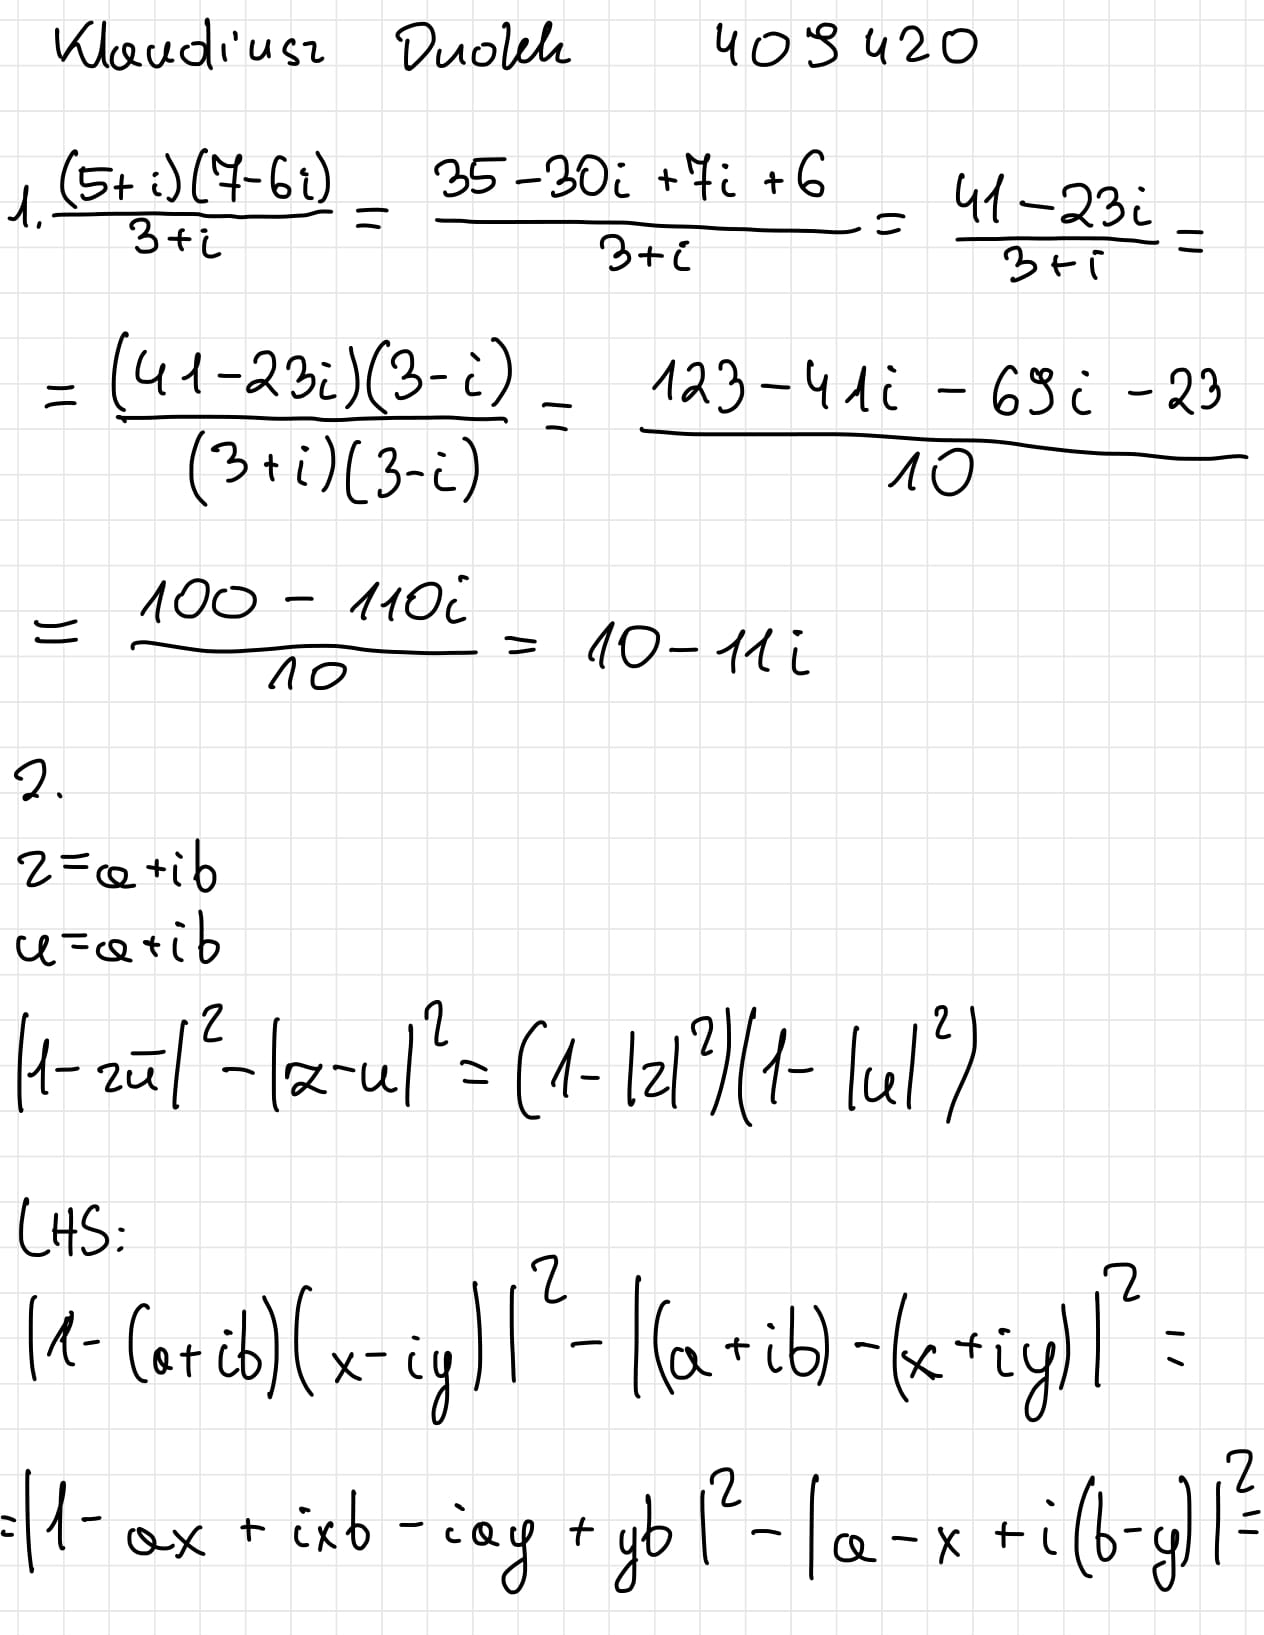 Klaudiusz Dudek 409420
1. (5+i)(7-6i)/3+i = 35-30i+7i+6/3+i = 41-23i/3+i =
= (41-23i)(3-i)/(3+i)(3-i) = 123-41i-69i-23/10
= 100-110i/10 = 10-11i
2.
z=a+ib
u=a+ib
|1-zū|²-|z-u|²=(1-|z|²)(1-|u|²)
LHS:
|1-(a+ib)(x-iy)|²-|(a+ib)-(x+iy)|²=
=|1-ax+ixb-iay+yb|²-|a-x+i(b-y)|²=